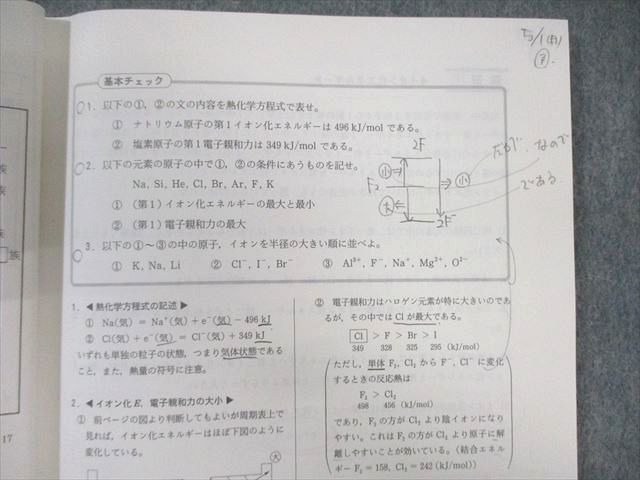 5/1(月)
基本チェック
1. 以下の①,②の文の内容を熱化学方程式で表せ。
① ナトリウム原子の第1イオン化エネルギーは 496 kJ/mol である。
② 塩素原子の第1電子親和力は 349 kJ/mol である。
2. 以下の元素の原子の中で①,②の条件にあうものを記せ。
Na, Si, He, Cl, Br, Ar, F, K
① (第1)イオン化エネルギーの最大と最小
② (第1)電子親和力の最大
2F
小
F₂
大
2F⁻
小
だが, なので
である
3. 以下の①~③の中の原子,イオンを半径の大きい順に並べよ。
① K, Na, Li ② Cl⁻, I⁻, Br⁻ ③ Al³⁺, F⁻, Na⁺, Mg²⁺, O²⁻
1. ◀ 熱化学方程式の記述 ▶
① Na(気) = Na⁺(気) + e⁻(気) − 496 kJ
② Cl(気) + e⁻(気) = Cl⁻(気) + 349 kJ
いずれも単独の粒子の状態,つまり気体状態である
こと,また,熱量の符号に注意。
2. ◀ イオン化 E, 電子親和力の大小 ▶
① 前ページの図より判断してもよいが周期表上で
見れば,イオン化エネルギーはほぼ下図のように
変化している。
大
② 電子親和力はハロゲン元素が特に大きいのであ
るが,その中では Cl が最大である。
Cl > F > Br > I
349 328 325 295 (kJ/mol)
ただし,単体 F₂, Cl₂ から F⁻, Cl⁻ に変化
するときの反応熱は
F₂ > Cl₂
498 456 (kJ/mol)
であり,F₂ の方が Cl₂ より陰イオンになり
やすい。これは F₂ の方が Cl₂ より原子に解
離しやすいことが効いている。(結合エネル
ギー F₂ = 158, Cl₂ = 242 (kJ/mol))
族
族
17